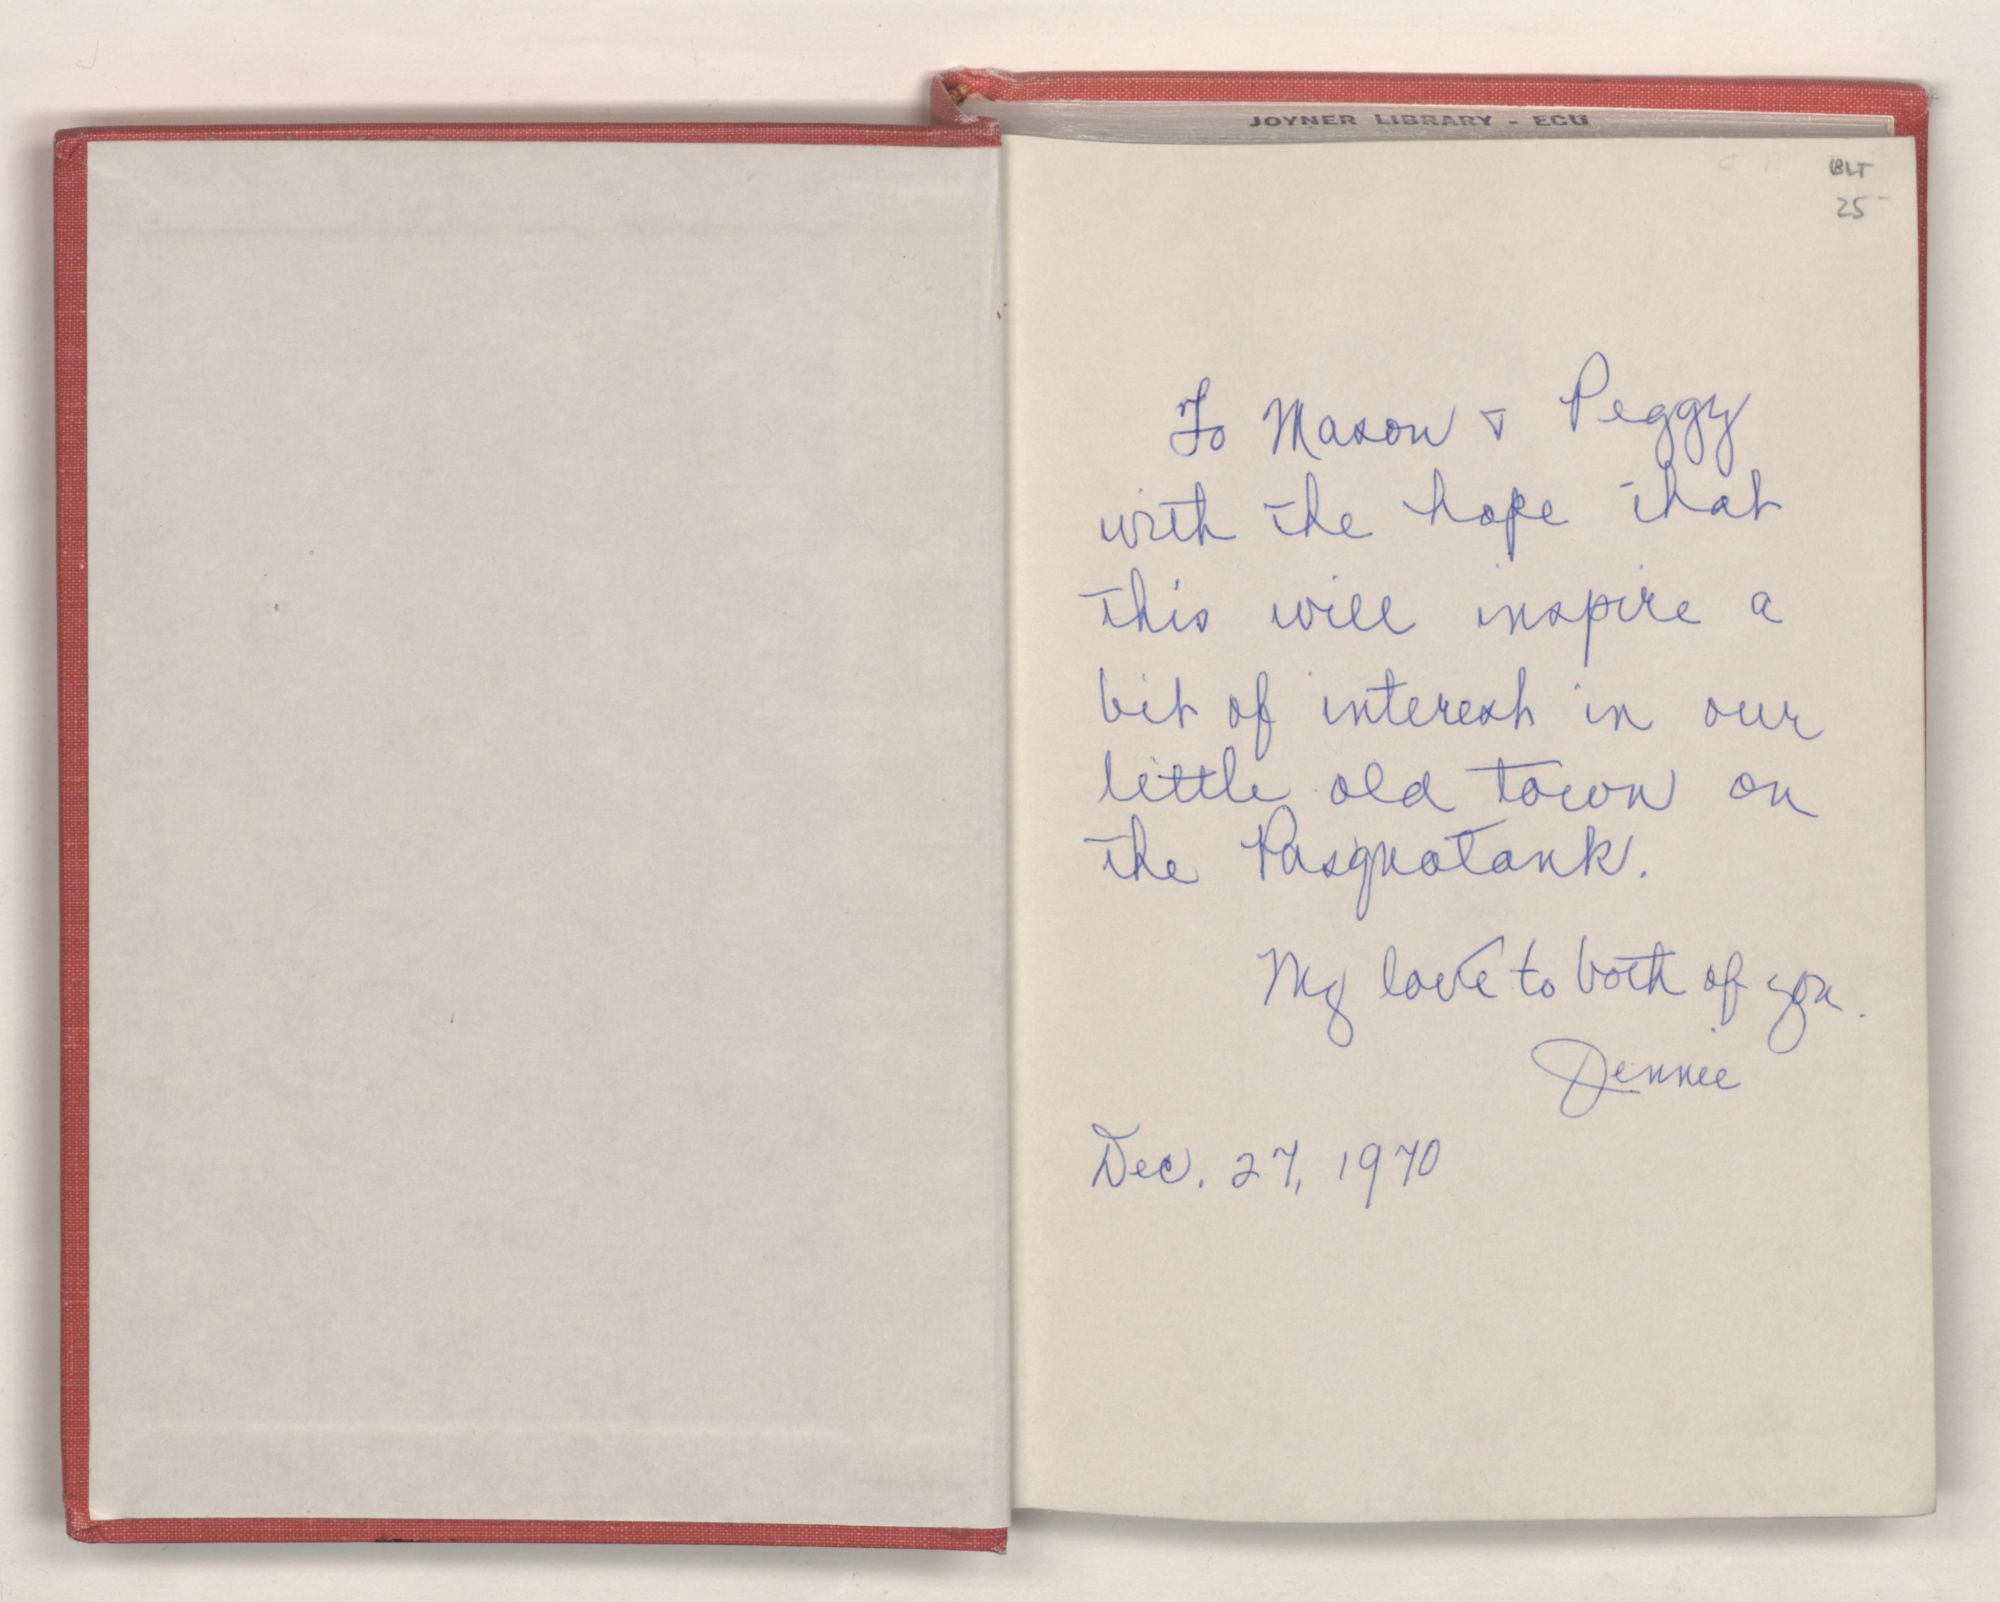 JOYNER LIBRARY - ECU
BLT
25-
To Mason & Peggy
with the hope that
this will inspire a
bit of interest in our
little old town on
the Pasquotank.
My love to both of you.
Jennie
Dec. 27, 1970